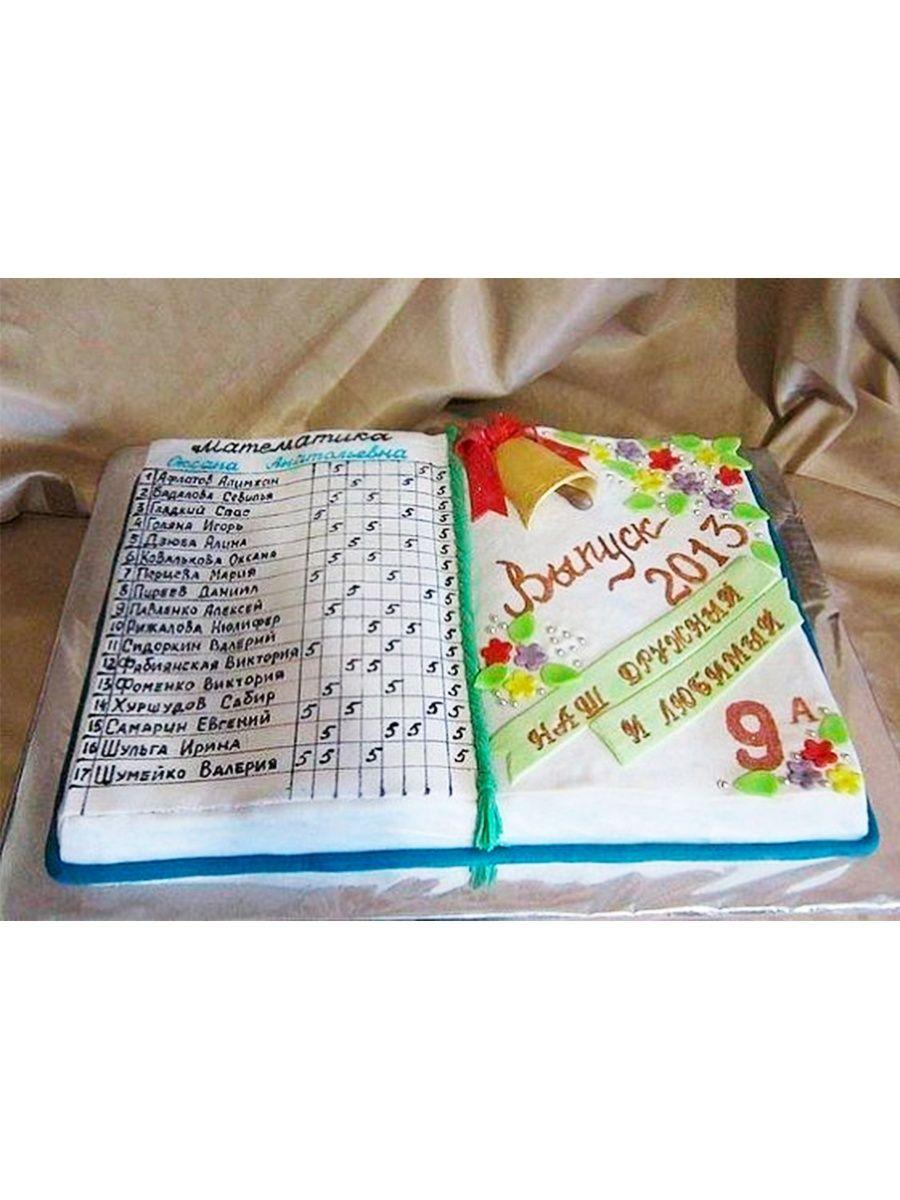 Математика
Оксана Анатольевна
1 Афлатов Алимхан 5 5 5 5 5
2 Бадалова Севилья 5 5 5
3 Гладкий Спас 5 5 5
4 Голяна Игорь 5 5 5
5 Дзюба Алина 5 5 5
6 Ковалькова Оксана 5 5 5
7 Перцева Мария 5 5 5
8 Пиреев Даниил 5 5 5
9 Павленко Алексей 5 5 5
10 Рыжалова Нюлифер 5 5 5
11 Сидоркин Валерий 5 5 5
12 Фабиянская Виктория 5 5 5 5
13 Фоменко Виктория 5 5 5
14 Хуршудов Сабир 5 5 5 5
15 Самарин Евгений 5 5 5 5
16 Шульга Ирина 5 5 5 5
17 Шумейко Валерия
Выпуск
2013
НАШ ДРУЖНЫЙ
И ЛЮБИМЫЙ
9 А